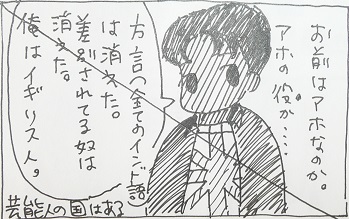 お前はアホなのか。
アホの役か…
方言の全てのインド語
は消えた。
差別されてる奴は
消えた。
俺はイギリス人。
芸能人の国はある